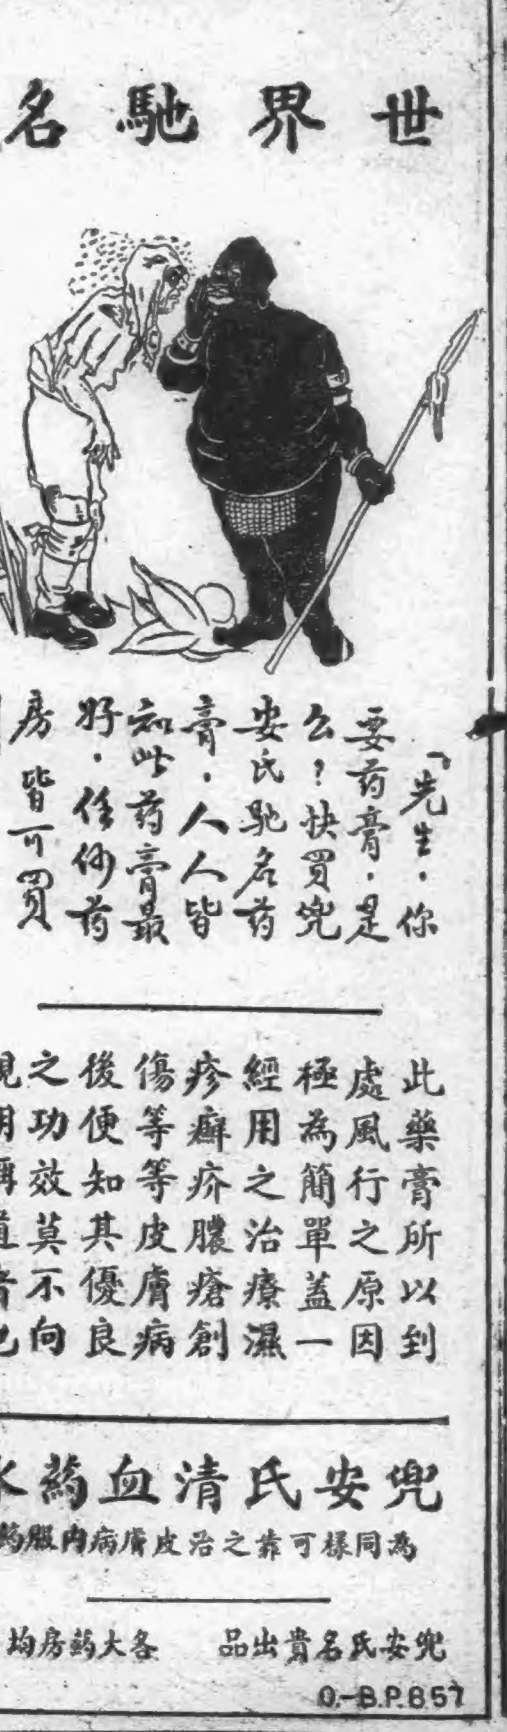 世界馳名
「先生．你
要药膏．是
么？快買兜
安氏馳名药
膏．人人皆
知此药膏最
好．任何药
房皆可買
此藥膏所以到
處風行之原因
極為簡單蓋一
經用之治療濕
疹癬疥膿瘡創
傷等等皮膚病
後便知其優良
之功效莫不向
兜安氏清血药水
為同樣可靠之治皮膚病内服药
兜安氏名貴出品 各大药房均
O.-B.P.B.57